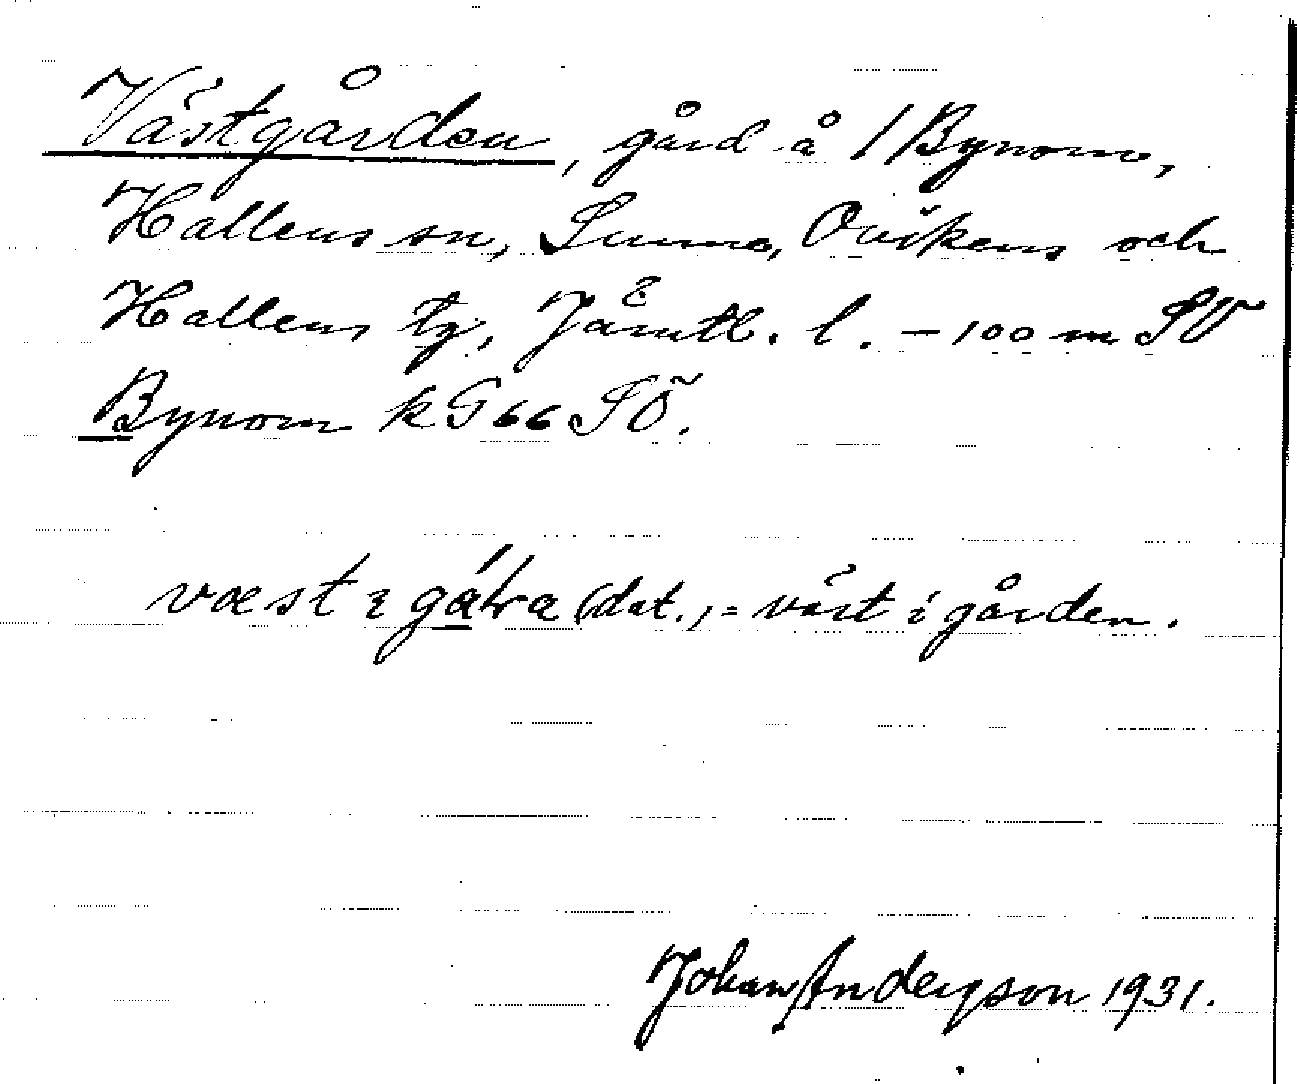 Västgården, gård å 1 Bynom,
Hallens sn, Sunne, Ovikens och
Hallens tg, Jämtl. l. – 100 m SV
Bynom k G 66 SÖ.
væst i gáɽa (dat.) = väst i gården.
Johan Anderzson 1931.